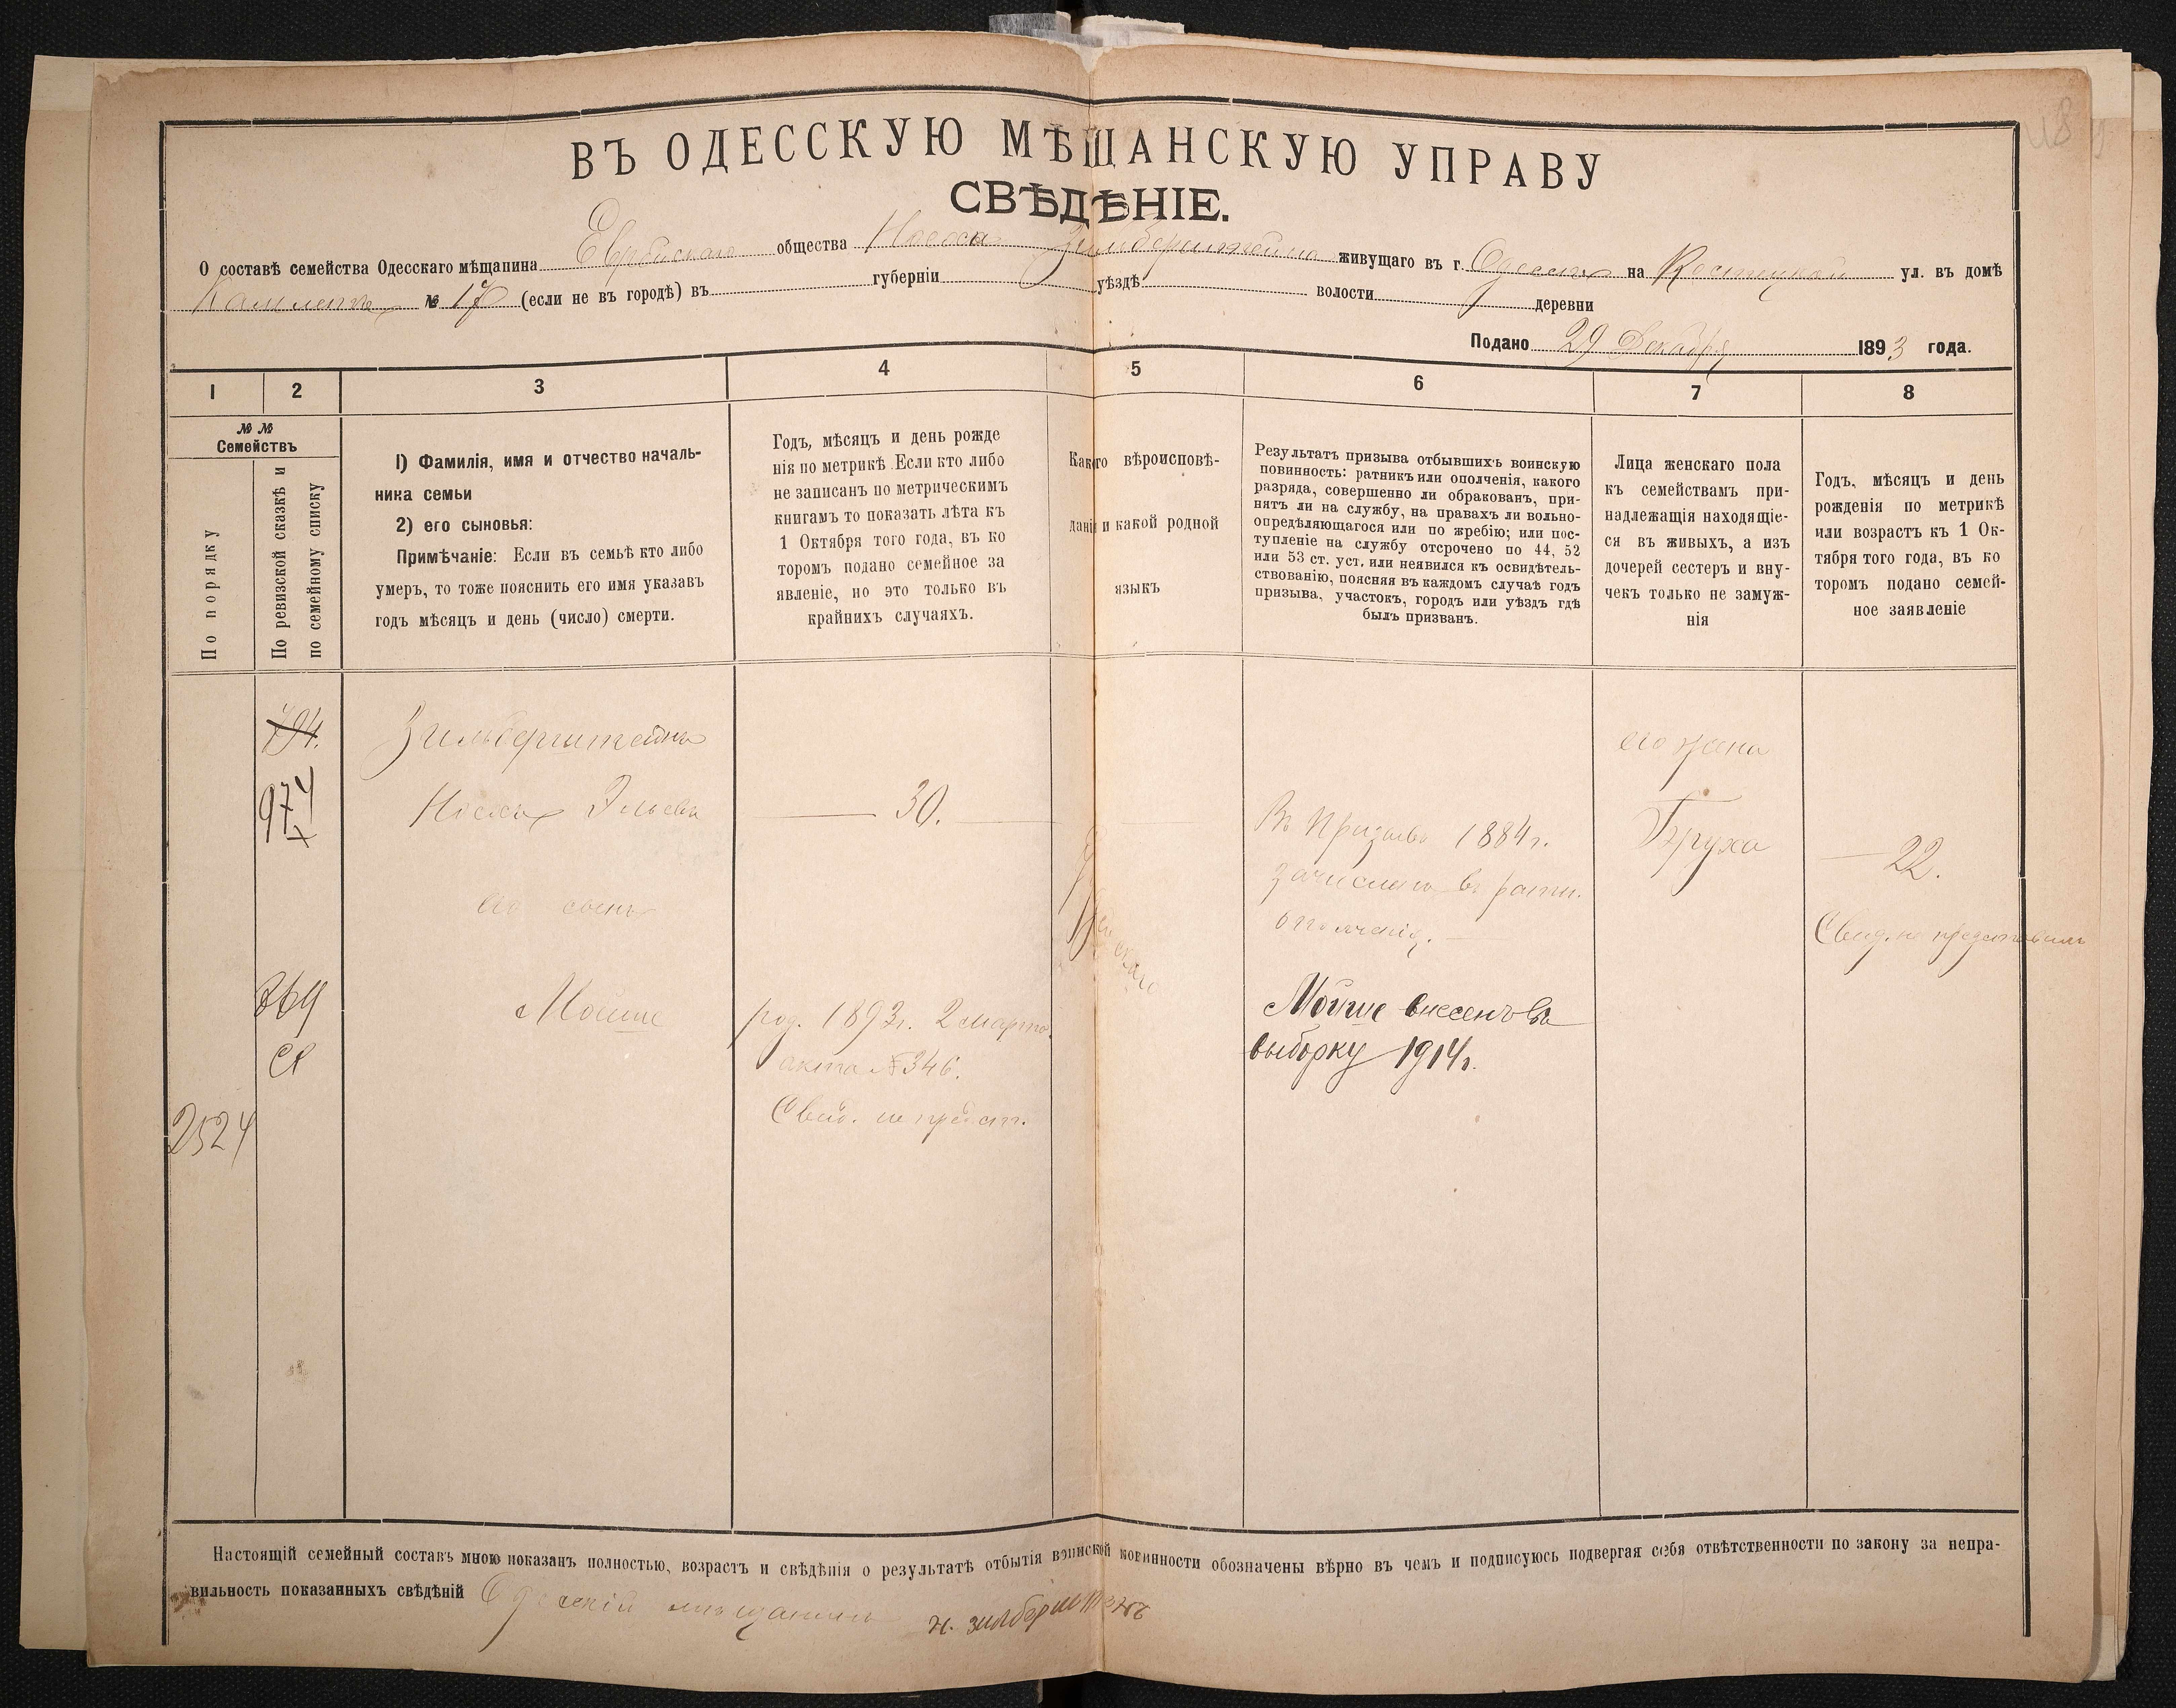 ВЪ ОДЕССКУЮ МѢЩАНСКУЮ УПРАВУ
СВѢДѢНІЕ.
О составѣ семейства Одесскаго мѣщанина Еврейскаго общества Носсона Зильберштейна живущаго въ г. Одессѣ на Костецкой ул. въ домѣ
№ 17 (если не въ городѣ) въ губерніи уѣздѣ волости деревни
Подано 29 Декабря 1893 года.
1 2 3 4 5 6 7 8
№ №
Семействъ
По порядку
По ревизской сказкѣ и
по семейному списку
1) Фамилія, имя и отчество началь-
ника семьи
2) его сыновья:
Примѣчаніе: Если въ семьѣ кто либо
умеръ, то тоже пояснить его имя указавъ
годъ мѣсяцъ и день (число) смерти.
Годъ, мѣсяцъ и день рожде
нія по метрикѣ Если кто либо
не записанъ по метрическимъ
книгамъ то показать лѣта къ
1 Октября того года, въ ко
торомъ подано семейное за
явленіе, но это только въ
крайнихъ случаяхъ.
Какого вѣроисповѣ-
данія и какой родной
языкъ
Результатъ призыва отбывшихъ воинскую
повинность: ратникъ или ополченія, какого
разряда, совершенно ли обракованъ, при-
нятъ ли на службу, на правахъ ли вольно-
опредѣляющагося или по жребію; или пос-
тупленіе на службу отсрочено по 44, 52
или 53 ст. уст. или неявился къ освидѣтель-
ствованію, поясняя въ каждомъ случаѣ годъ
призыва, участокъ, городъ или уѣздъ гдѣ
былъ призванъ.
Лица женскаго пола
къ семействамъ при-
надлежащія находящіе-
ся въ живыхъ, а изъ
дочерей сестеръ и вну-
чекъ только не замуж-
нія
Годъ, мѣсяцъ и день
рожденія по метрикѣ
или возрастъ къ 1 Ок-
тября того года, въ ко
торомъ подано семей-
ное заявленіе
794.
Зильберштейнъ
его жена
974
Эльевъ
30.
Въ Призывъ 1884 г.
Бруха
22.
зачисленъ въ ратн.
его сынъ
ополченія.
Свид. не представилъ
Еврейскаго
764
Мойше
род. 1893 г. 2 марта
Мойше внесенъ въ
акта № 346.
выборку 1914 г.
2524
Свид. не предст.
Настоящій семейный составъ мною показанъ полностью, возрастъ и свѣдѣнія о результатѣ отбытія воинской повинности обозначены вѣрно въ чемъ и подписуюсь подвергая себя отвѣтственности по закону за непра-
вильность показанныхъ свѣдѣній Одесскій мѣщанинъ Н. Зилберштейнъ